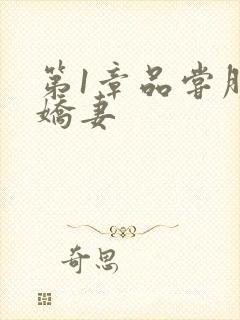 第1章品尝
娇妻
奇思